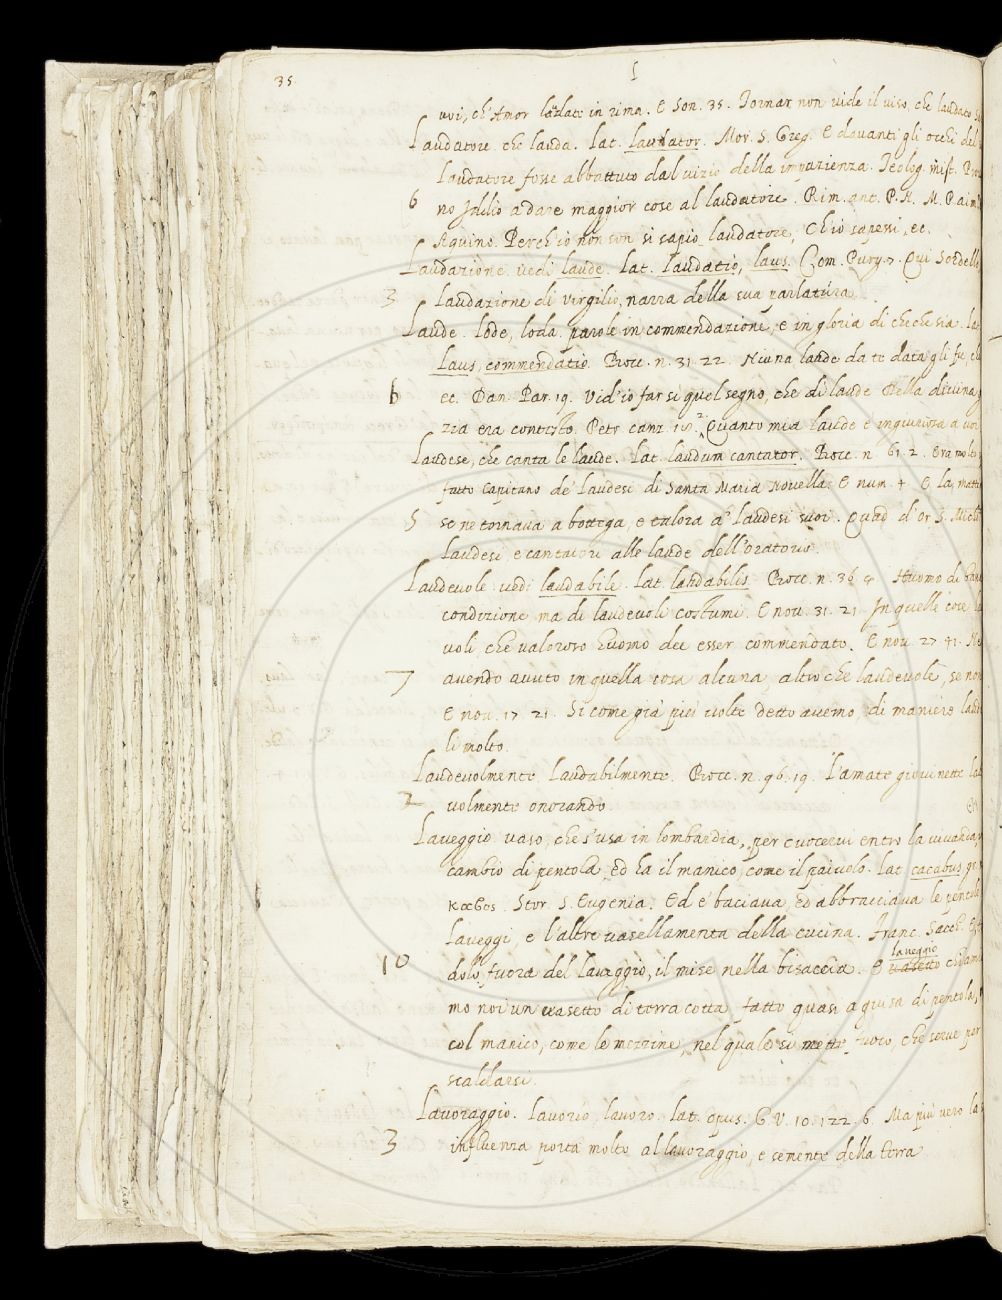 35
L
uoi, ch'Amor laudate in rima. E Son. 35. Tornar non uide il uiso, che laudato
Laudatore che lauda. Lat. laudator. Mor. S. Greg. E dauanti gli occhi del
Laudatore fosse abbattuto dal uizio della impazienza. Teolog. mist.
6 no Iddio a dare maggior cose al laudatore. Rim. ant. P. N. M.
Aquino. Perch'io non son si sapio laudatore, Ch'io sapessi, ec.
Laudazione. uedi laude. Lat. laudatio, laus. Com. Purg. 7. Qui Sordello
3 laudazione di Virgilio, narra della sua parlatura.
Laude. Lode, loda, parole in commendazione, e in gloria di che che sia. Lat.
Laus, commendatio. Bocc. n. 31. 22. Niuna laude da te data gli fu, che
6 ec. Dan. Par. 19. Vid'io farsi quel segno, che di laude Della diuina
zia era contesto. Petr. canz. Quanto mia laude è ingiuriosa a uoi
Laudese, che canta le laude. Lat. laudum cantator. Bocc. n. 61. 2. era molto
fatto Capitano de' Laudesi di Santa Maria Nouella. E num. 4. E la mattina
5 se ne tornaua a bottega, e talora a' Laudesi suoi. Quad. d'or S. Mich.
Laudesi, e cantatori alle laude dell'oratorio.
Laudeuole. uedi laudabile. Lat. laudabilis. Bocc. n. 36. Huomo di bassa
condizione, ma di laudeuoli costumi. E nou. 31. 21. In quelle cose
uoli, che ualoroso huomo dee esser commendato. E nou. 27. 41.
7 auendo auuto in quella cosa alcuna, altro che laudeuole, se non
E nou. 17. 21. Si come già più uolte detto auemo, di maniere
li molto.
Laudeuolmente. Laudabilmente. Bocc. n. 96. 19. L'amate giouinette
2 uolmente onorando.
Laueggio uaso, che s'usa in lombardia, per cuocerui entro la uiuanda,
cambio di pentola, ed ha il manico, come il paiuolo. Lat. cacabus, gr.
κάκαβος. Stor. S. Eugenia. Ed e' baciaua, ed abbracciaua le pentole
Laueggi, e l'altre uasellamenta della cucina. Franc. Sacch.
10 dolo fuora del laueggio, il mise nella bisaccia. E laueggio
mo noi un uasetto di terra cotta, fatto quasi a guisa di pentola,
col manico, come le mezzine, nel quale si mette fuoco, che serue per
scaldarsi.
Lauoraggio. Lauorio, lauoro. Lat. opus. G. V. 10. 122. 6. Ma più uero la
3 influenza porta molto al lauoraggio, e semente della terra